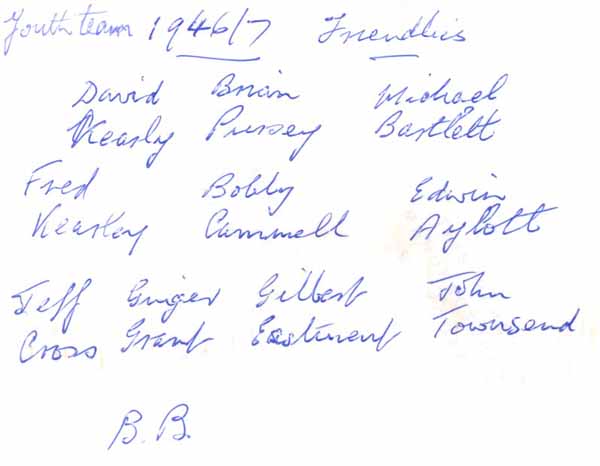 Youth team 1946/7 Friendlies
David Brian Michael
Kearly Pussey Bartlett
Fred Bobby Edwin
Kearley Cammell Aylott
Jeff Ginger Gilbert John
Cross Grant Eastment Townsend
B.B.